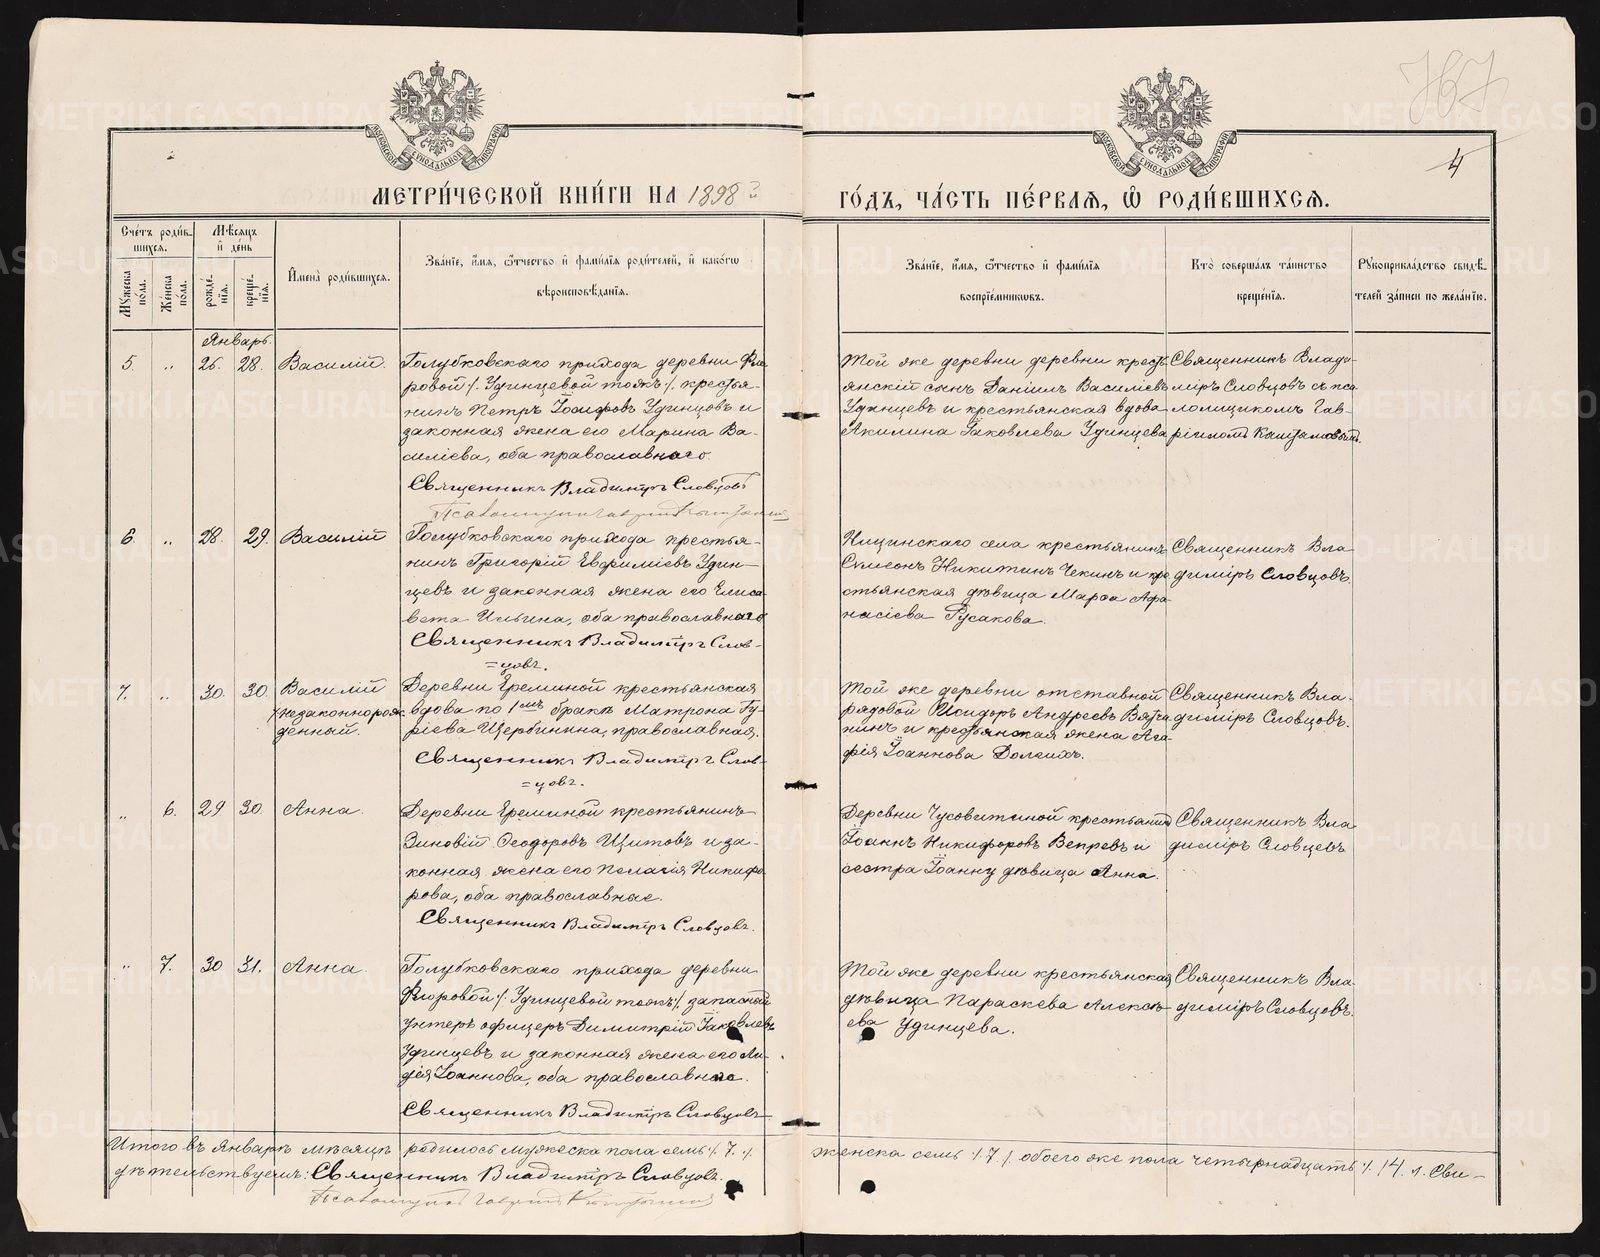 МЕТРИ́ЧЕСКОЙ КНИ́ГИ НА 1898 й
ГО́ДЪ, ЧА́СТЬ ПЕ́РВАѦ, Ѿ РОДИ́ВШИХСѦ.
4
Сче́тъ роди́в-
шихся.
Мѣ́сяцъ
и де́нь
Мꙋ́жеска по́ла.
Же́нска по́ла.
рожде́-нїя.
креще́-нїя.
И҆мена̀ роди́вшихся.
Зва́нїе, и҆́мя, ѻ҆́тчество и҆ фами́лїя роди́телей, и҆ како́гѡ
вѣроисповѣ́данїя.
Зва́нїе, и҆́мя, ѻ҆́тчество и҆ фами́лїя
воспрїе́мникѡвъ.
Кто̀ соверша́лъ та́инство
креще́нїя.
Рꙋкоприкла́дство свидѣ́-
телей за́писи по жела́нїю.
Январь.
5. „ 26. 28. Василій.
Голубковскаго прихода деревни Фю-
ровой /. Удинцевой тожъ ./ крестья-
нинъ Петръ Іосифовъ Удинцовъ и
законная жена его Марина Ва-
силіева, оба православнаго
Священникъ Владиміръ Словцовъ
Той же деревни деревни кресть
янскій сынъ Даніилъ Василіевъ
Удинцевъ и крестьянская вдова
Акилина Іаковлева Удинцева
Священникъ Влади-
міръ Словцовъ съ пса
ломщикомъ Гав-
ріиломъ
6. „ 28. 29. Василій
Голубковскаго прихода крестья-
нинъ Григорій Евфиміевъ Удин-
цевъ и законная жена его Елиса
вета Ильина, оба православнаго
Священникъ Владиміръ Слов-
=цовъ.
Ницинскаго села крестьянинъ
Симеонъ Никитинъ Чекинъ и кре
стьянская дѣвица Марѳа Афа
насіева Русакова.
Священникъ Вла
диміръ Словцовъ.
7. „ 30. 30. Василій
/незаконнорож
денный.
Деревни Ереминой крестьянская
вдова по 1мъ бракѣ Матрона Гу-
ріева Щербинина, православная.
Священникъ Владиміръ Слов-
=цовъ.
Той же деревни отставной
рядовой Исидоръ Андреевъ Вятча
нинъ и крестьянская жена Ага
фія Іоаннова Долгихъ.
Священникъ Вла-
диміръ Словцовъ.
„ 6. 29 30. Анна.
Деревни Ереминой крестьянинъ
Зиновій Ѳеодоровъ Щитовъ и за-
конная жена его Пелагія Никифо
рова, оба православные.
Священникъ Владиміръ Словцовъ.
Деревни Чусовитиной крестьянинъ
Іоаннъ Никифоровъ Вепревъ и
сестра Іоанну дѣвица Анна.
Священникъ Вла
диміръ Словцевъ
„ 7. 30 31. Анна.
Голубковскаго прихода деревни
Фюровой /. Удинцевой тожъ ./ запасной
унтеръ офицеръ Димитрій Іаковлевъ
Удинцевъ и законная жена его Ли-
дія Іоаннова, оба православнаго.
Священникъ Владиміръ Словцовъ
Той же деревни крестьянская
дѣвица Параскева Алексѣ-
ева Удинцева.
Священникъ Вла
диміръ Словцовъ.
Итого въ Январѣ мѣсяцѣ родилось мужеска пола семь /. 7. ./ женска семь /. 7 /. обоего же пола четырнадцать /. 14. /. Сви-
дѣтельствуемъ: Священникъ Владиміръ Словцовъ.